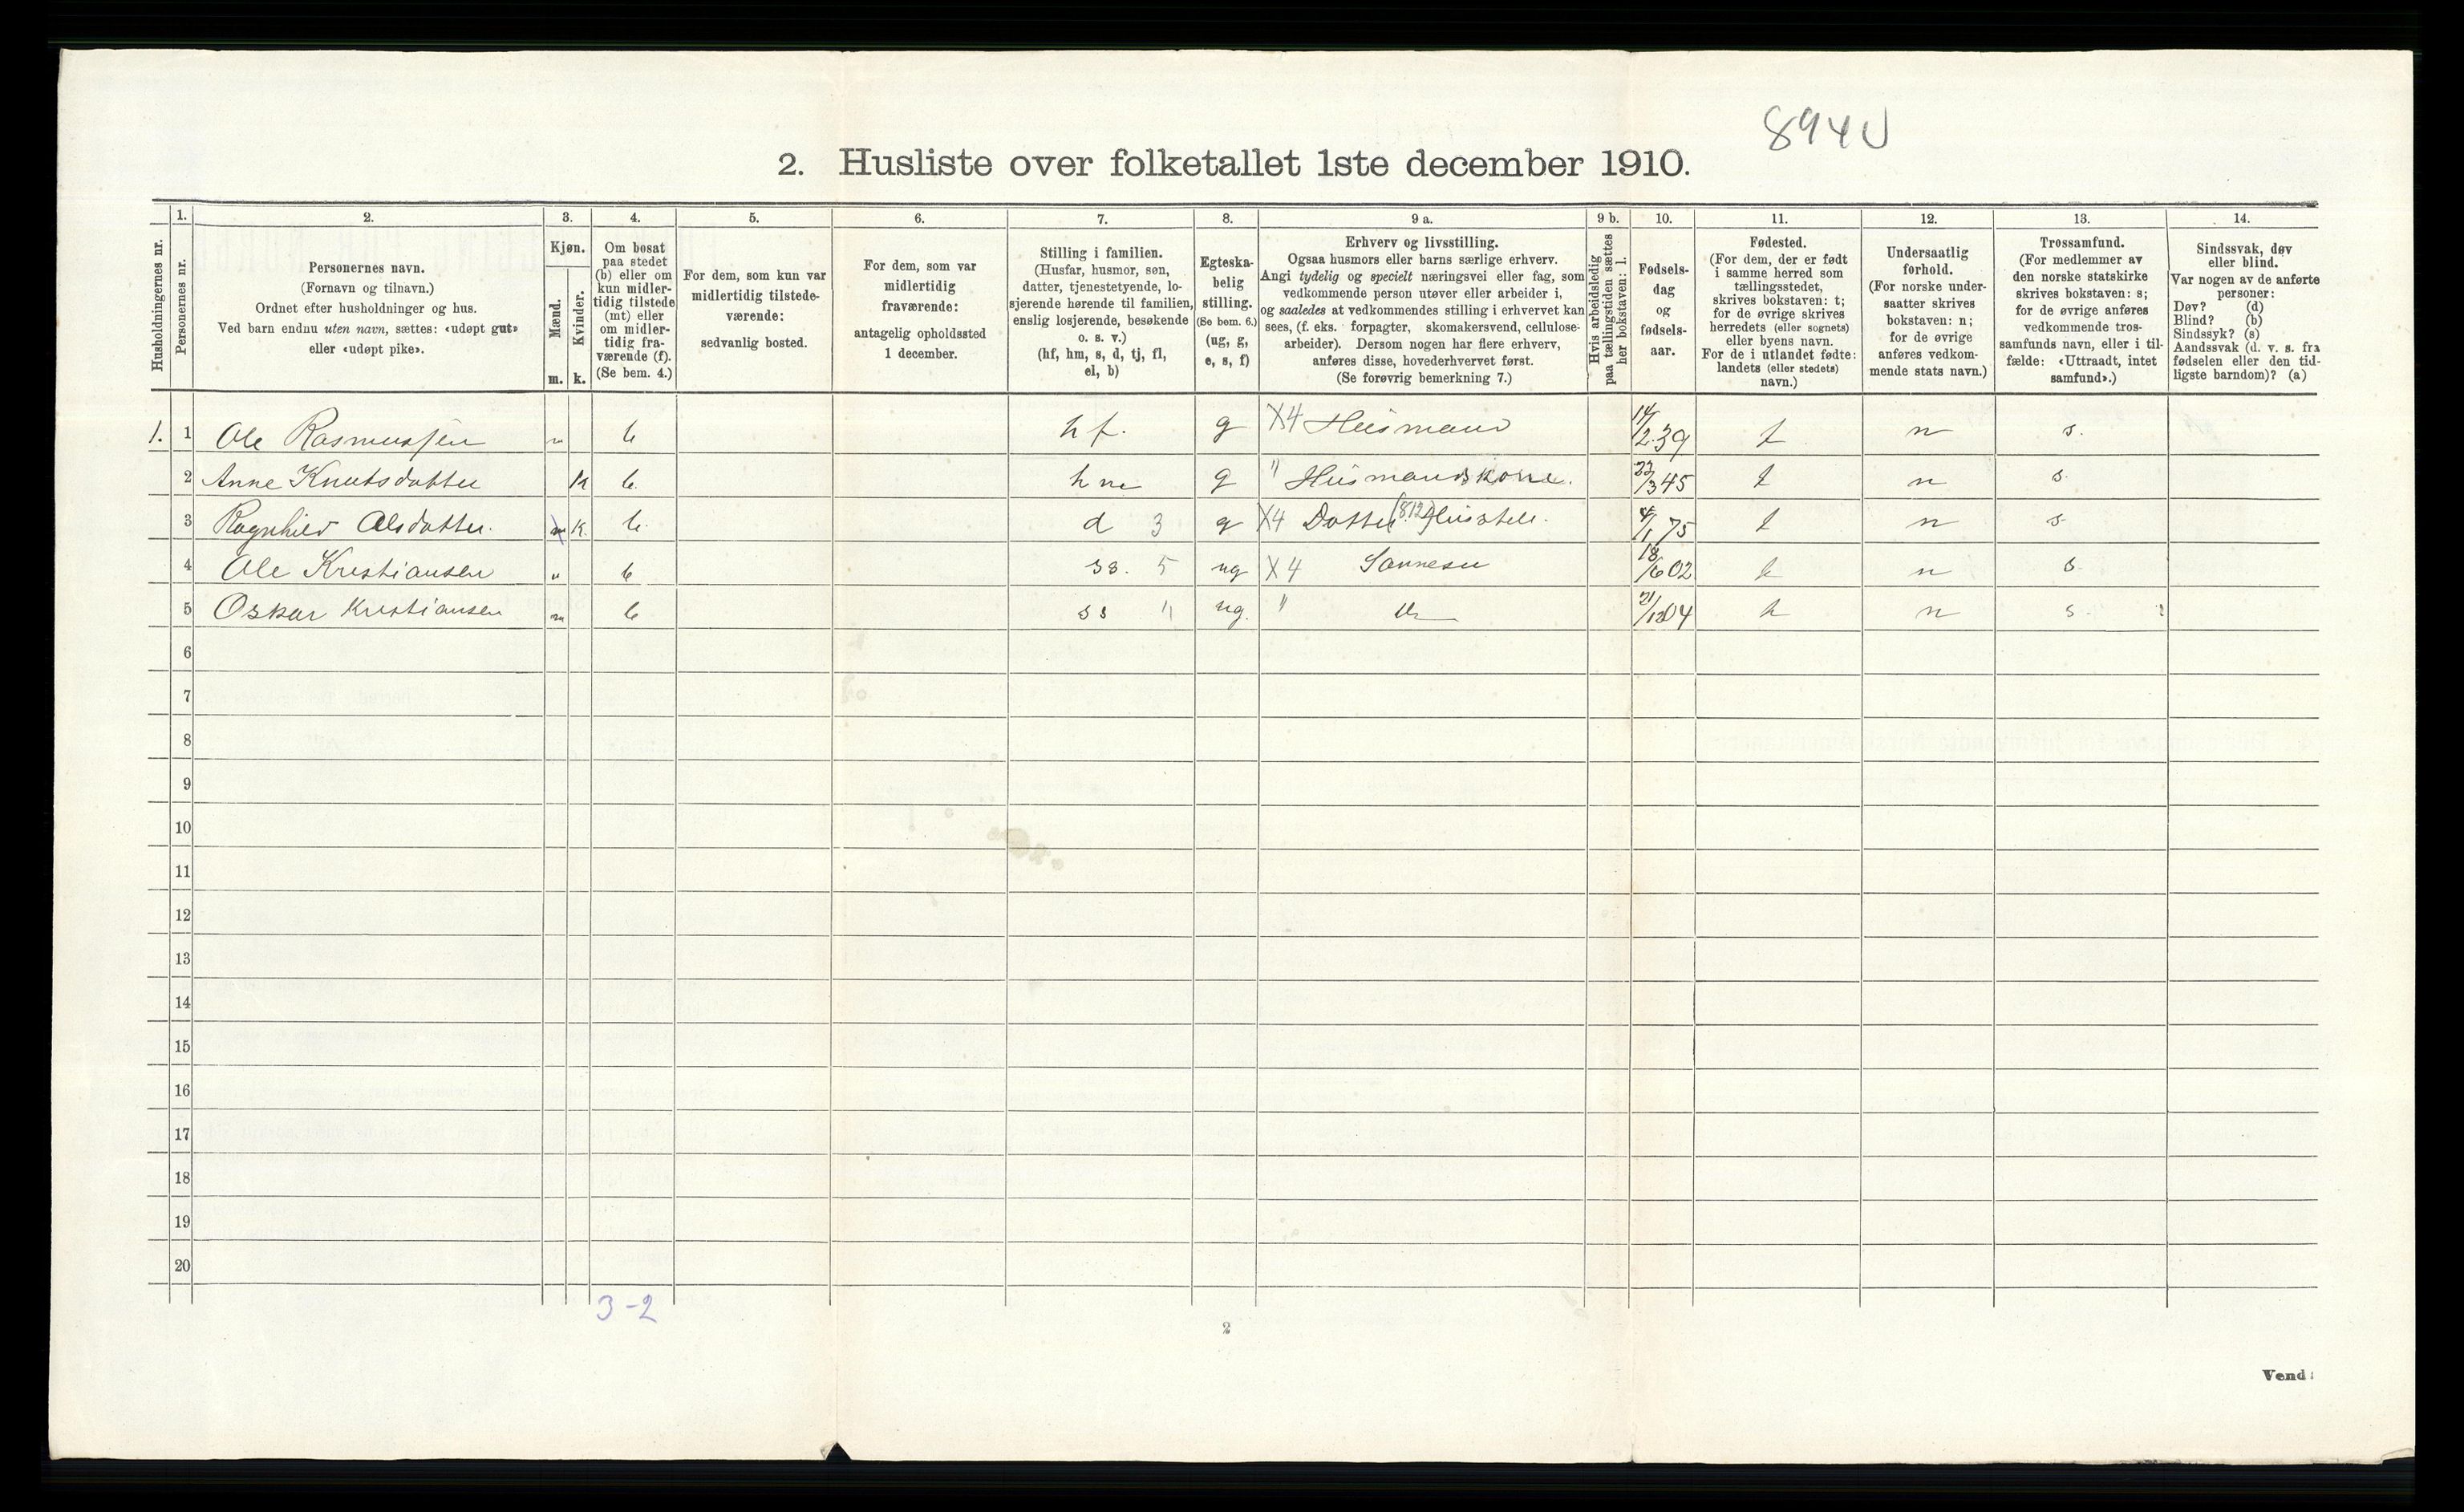 894 U
2. Husliste over folketallet 1ste december 1910.
Husholdningernes nr.
1.
Personernes nr.
2.
Personernes navn.
(Fornavn og tilnavn.)
Ordnet efter husholdninger og hus.
Ved barn endnu uten navn, sættes: «udøpt gut»
eller «udøpt pike».
3.
Kjøn.
Mænd.
m.
Kvinder.
k.
4.
Om bosat
paa stedet
(b) eller om
kun midler-
tidig tilstede
(mt) eller
om midler-
tidig fra-
værende (f).
(Se bem. 4.)
5.
For dem, som kun var
midlertidig tilstede-
værende:
sedvanlig bosted.
6.
For dem, som var
midlertidig
fraværende:
antagelig opholdssted
1 december.
7.
Stilling i familien.
(Husfar, husmor, søn,
datter, tjenestetyende, lo-
sjerende hørende til familien,
enslig losjerende, besøkende
o. s. v.)
(hf, hm, s, d, tj, fl,
el, b)
8.
Egteska-
belig
stilling.
(Se bem. 6.)
(ug, g,
e, s, f)
9 a.
Erhverv og livsstilling.
Ogsaa husmors eller barns særlige erhverv.
Angi tydelig og specielt næringsvei eller fag, som
vedkommende person utøver eller arbeider i,
og saaledes at vedkommendes stilling i erhvervet kan
sees, (f. eks. forpagter, skomakersvend, cellulose-
arbeider). Dersom nogen har flere erhverv,
anføres disse, hovederhvervet først.
(Se forøvrig bemerkning 7.)
9 b.
Hvis arbeidsledig
paa tællingstiden sættes
her bokstaven: l.
10.
Fødsels-
dag
og
fødsels-
aar.
11.
Fødested.
(For dem, der er født
i samme herred som
tællingsstedet,
skrives bokstaven: t;
for de øvrige skrives
herredets (eller sognets)
eller byens navn.
For de i utlandet fødte:
landets (eller stedets)
navn.)
12.
Undersaatlig
forhold.
(For norske under-
saatter skrives
bokstaven: n;
for de øvrige
anføres vedkom-
mende stats navn.)
13.
Trossamfund.
(For medlemmer av
den norske statskirke
skrives bokstaven: s;
for de øvrige anføres
vedkommende tros-
samfunds navn, eller i til-
fælde: «Uttraadt, intet
samfund».)
14.
Sindssvak, døv
eller blind.
Var nogen av de anførte
personer:
Døv? (d)
Blind? (b)
Sindssyk? (s)
Aandssvak (d. v. s. fra
fødselen eller den tid-
ligste barndom)? (a)
1. 1 Ole Rasmussen m b hf. g X4 Husmand 14/2.39 t n s.
2 Anne Knutsdatter K b. hm g " Husmandskone. 22/3 45 t n s.
3 Ragnhild Olsdatter. K. b. d 3 g X4 Datter (812) Husstell. 4/1 75 t n s.
4 Ole Kristiansen " b ss. 5 ug X4 Sønnesøn 18/6 02 t n s.
5 Oskar Kristiansen m b ss " ug. " Do 21/12 04 t n s.
6
7
8
9
10
11
12
13
14
15
16
17
18
19
20
3-2
2
Vend!